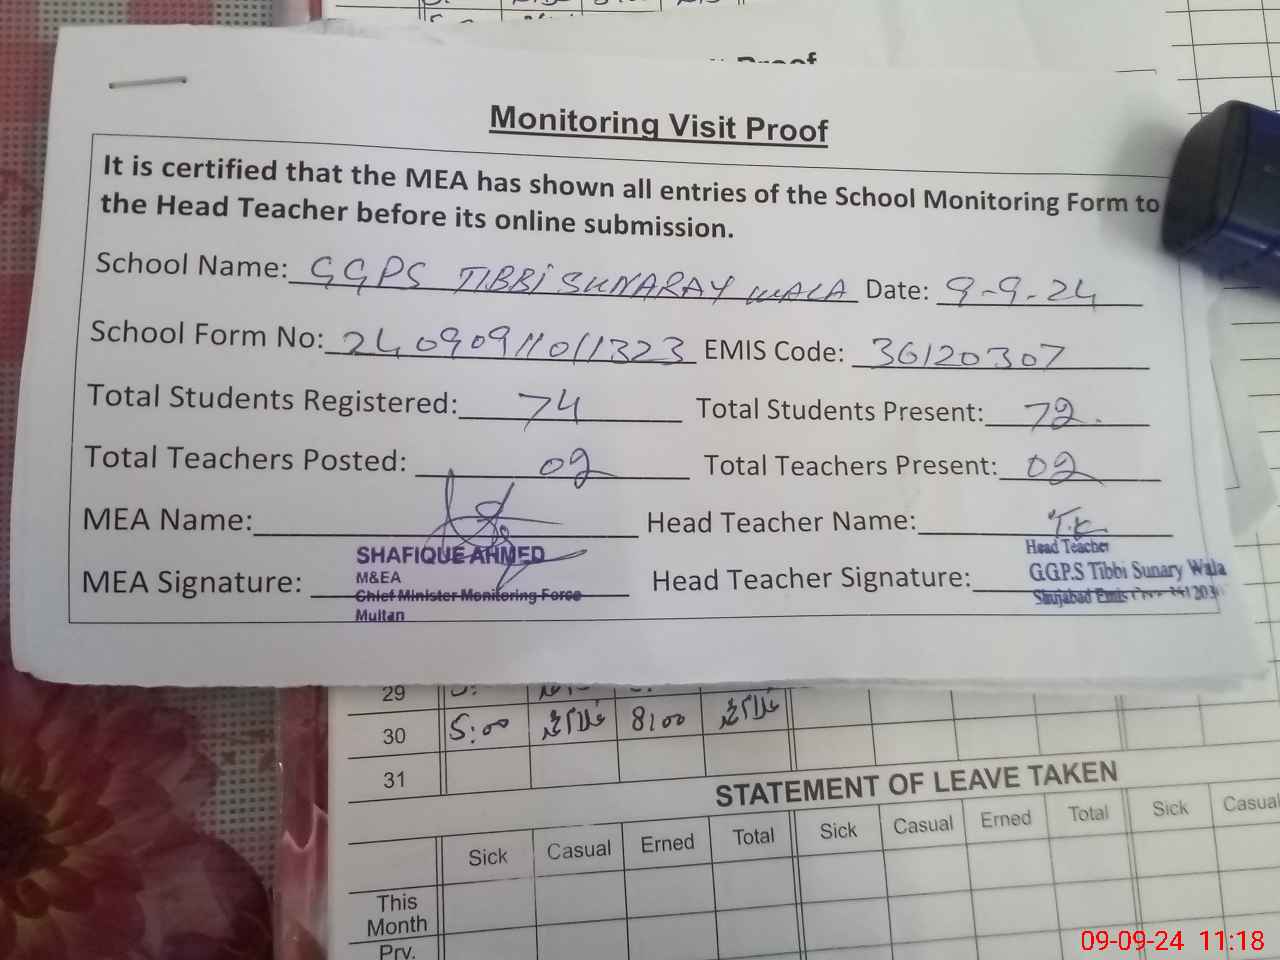 Monitoring Visit Proof
It is certified that the MEA has shown all entries of the School Monitoring Form to
the Head Teacher before its online submission.
School Name: GGPS TIBBI SUNARAY WALA Date: 9-9-24
School Form No: 24090911011323 EMIS Code: 36120307
Total Students Registered: 74 Total Students Present: 72.
Total Teachers Posted: 02 Total Teachers Present: 02
MEA Name: Head Teacher Name: T.K
SHAFIQUE AHMED
M&EA
Head Teacher
MEA Signature: Head Teacher Signature: G.G.P.S Tibbi Sunary Wala
Chief Minister Monitoring Force
Shujabad Emis
Multan
29
30 5:00 8:00
31
STATEMENT OF LEAVE TAKEN
Sick Casual Erned Total Sick Casual Erned Total Sick Casual
This
Month
Prv.
09-09-24 11:18